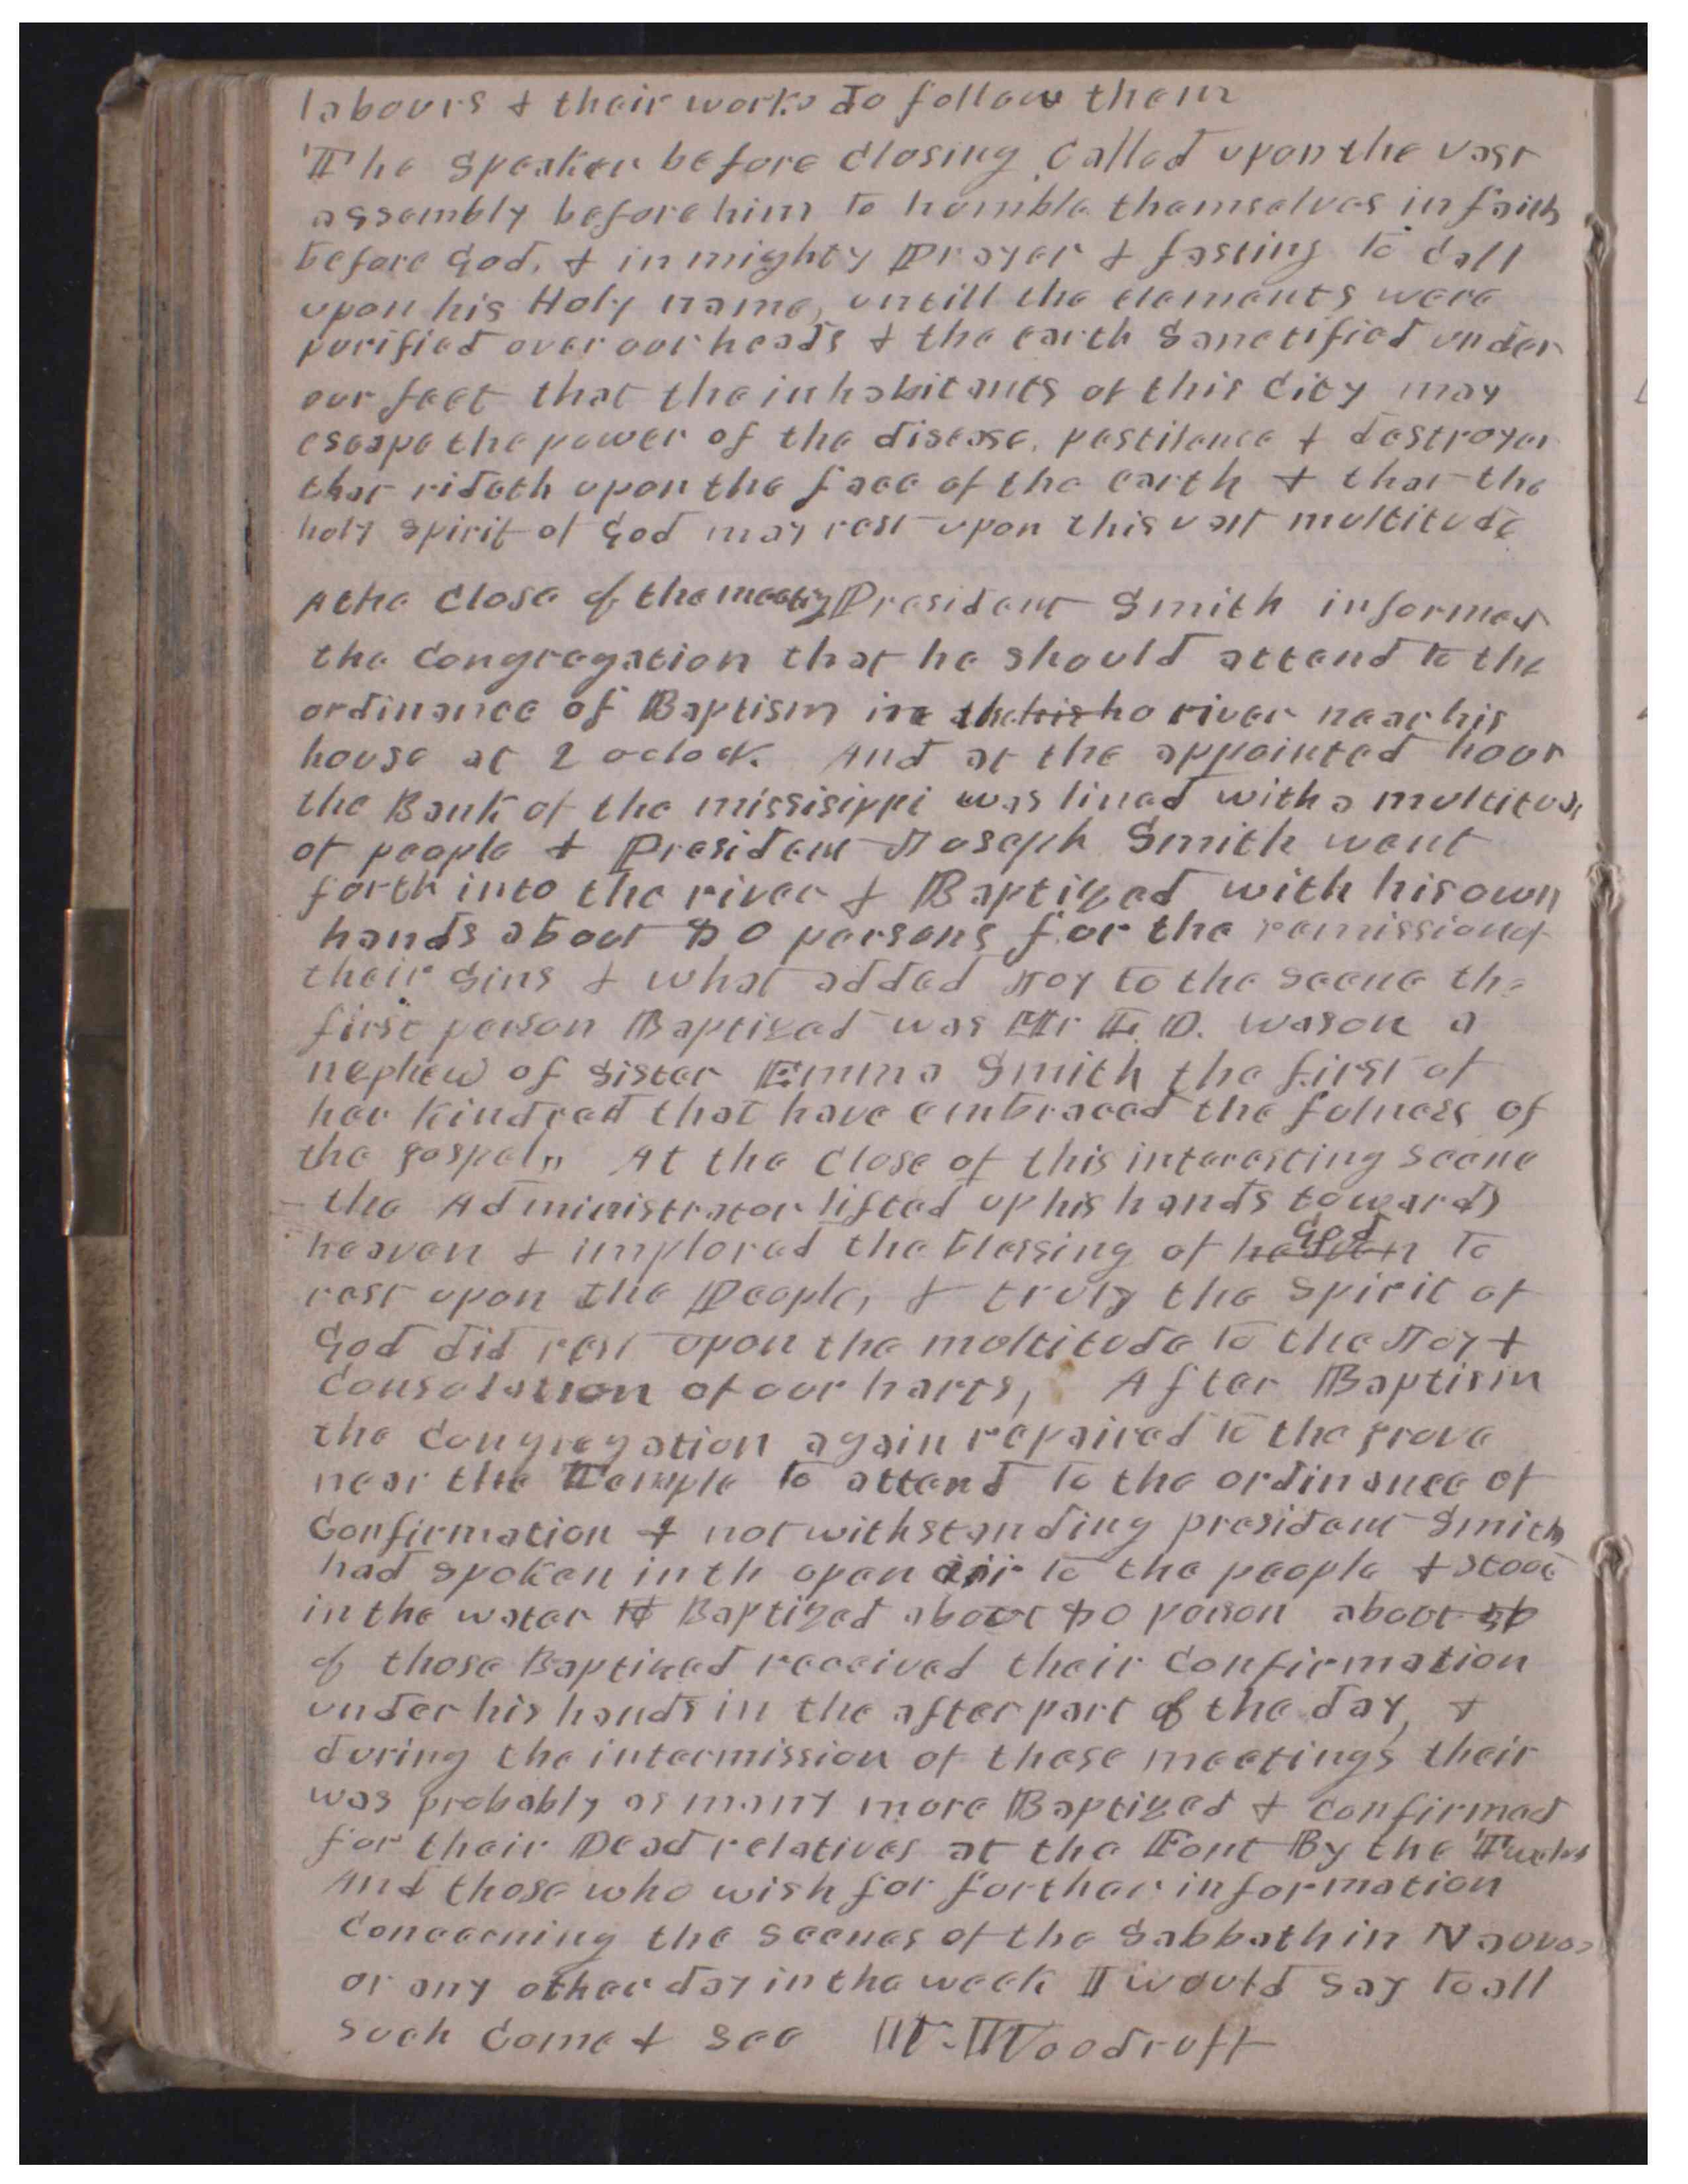 labours & their works do follow them
The Speaker before closing called upon the vast
assembly before him to humble themselves in faith
before God, & in mighty Prayer & fasting to call
upon his Holy name, untill the elements were
purified over our heads & the earth Sanctified under
our feet that the inhabitants of this city may
escape the power of the disease, pestilence & destroyer
that rideth upon the face of the earth & that the
holy spirit of God may rest upon this vast multitude
At the close of the meeting President Smith informed
the congregation that he should attend to the
ordinance of Baptism in the river near his
house at 2 oclock. And at the appointed hour
the Bank of the missisippi was lined with a multitude
of people & President Joseph Smith went
forth into the river & Baptized with his own
hands about 80 persons for the remission of
their sins & what added Joy to the scene the
first person Baptized was Mr L. D. Wason a
nephew of Sister Emma Smith the first of
her kindred that have embraced the fulness of
the gospel,, At the close of this interesting scene
the Administrator lifted up his hands towards
heaven & implored the blessing of heaven God to
rest upon the People, & truly the spirit of
God did rest upon the multitude to the Joy &
consolation of our harts, After Baptism
the congregation again repaired to the grove
near the Temple to attend to the ordinance of
Confirmation & notwithstanding president Smith
had spoken in th open air to the people & stood
in the water & Baptized about 80 person about 50
of those Baptized received their confirmation
under his hands in the after part of the day, &
during the intermission of these meetings their
was probably as many more Baptized & confirmed
for their Dead relatives at the Font By the Twelve
And those who wish for further information
concerning the scenes of the Sabbath in Nauvoo
or any other day in the week I would say to all
such come & see W. Woodruff